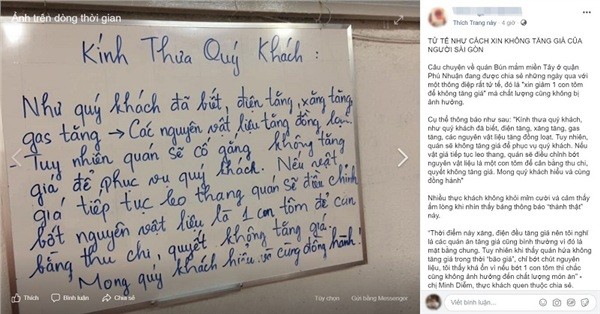 Ảnh trên dòng thời gian
Kính Thưa Quý Khách :
Như quý khách đã biết, điện tăng, xăng tăng,
gas tăng → Các nguyên vật liệu tăng đồng loạt.
- Tuy nhiên quán sẽ cố gắng không tăng
giá để phục vụ quý khách. Nếu vật
giá tiếp tục leo thang quán sẽ điều chỉnh
bớt nguyên vật liệu là 1 con tôm để cân
bằng thu chi, quyết không tăng giá.
Mong quý khách hiểu và cùng đồng hành!
Thích
Bình luận
Chia sẻ
Tùy chọn
Gửi bằng Messenger
Thích Trang này · 4 giờ ·
TỬ TẾ NHƯ CÁCH XIN KHÔNG TĂNG GIÁ CỦA
NGƯỜI SÀI GÒN
Câu chuyện về quán Bún mắm miền Tây ở quận
Phú Nhuận đang được chia sẻ những ngày qua với
một thông điệp rất tử tế, đó là "xin giảm 1 con tôm
để không tăng giá" mà chất lượng cũng không bị
ảnh hưởng.
Cụ thể thông báo như sau: "Kính thưa quý khách,
như quý khách đã biết, điện tăng, xăng tăng, gas
tăng, các nguyên vật liệu tăng đồng loạt. Tuy nhiên,
quán sẽ không tăng giá để phục vụ quý khách. Nếu
vật giá tiếp tục leo thang, quán sẽ điều chỉnh bớt
nguyên vật liệu là một con tôm để cân bằng thu chi,
quyết không tăng giá. Mong quý khách hiểu và cùng
đồng hành"
Nhiều thực khách không khỏi mỉm cười và cảm thấy
ấm lòng khi nhìn thấy bảng thông báo "thành thật"
này.
"Thời điểm này xăng, điện đều tăng giá nên tôi nghĩ
là các quán ăn tăng giá cũng bình thường vì đó là
mặt bằng chung. Tuy nhiên khi thấy quán hứa không
tăng giá trong thời "bão giá", chỉ bớt chút nguyên
liệu, tôi thấy khá ổn vì nếu bớt 1 con tôm thì chắc
cũng không ảnh hưởng đến chất lượng món ăn" -
chị Minh Diễm, thực khách quen thuộc chia sẻ.
Viết bình luận...